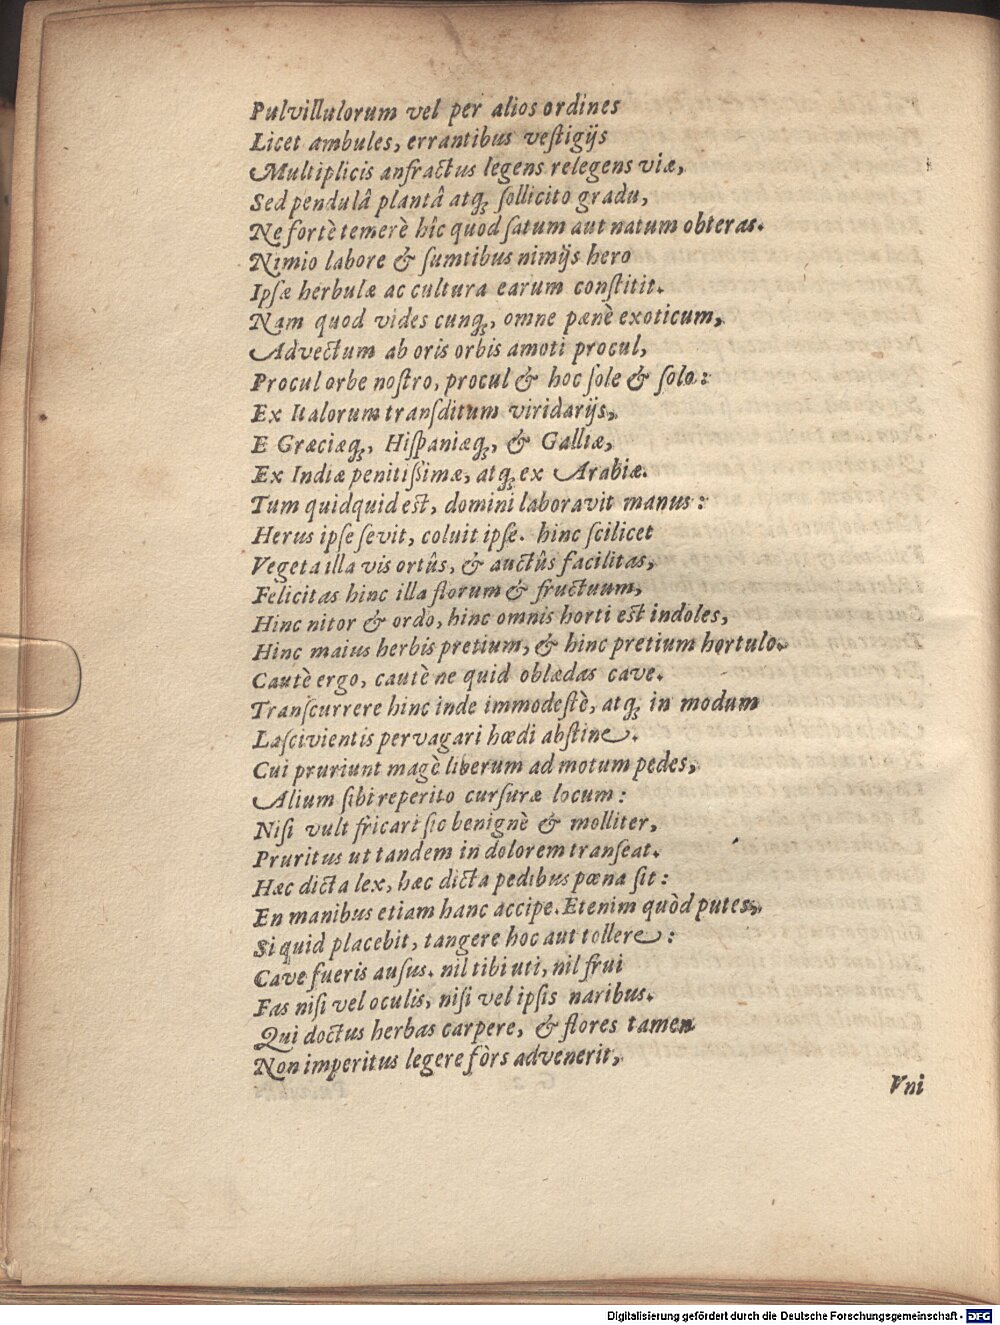 Pulvillulorum vel per alios ordines
Licet ambules, errantibus veſtigijs
Multiplicis anfractus legens relegens viæ,
Sed pendulâ plantâ atq; ſollicito gradu,
Ne fortè temerè hîc quod ſatum aut natum obteras.
Nimio labore & ſumtibus nimijs hero
Ipſæ herbulæ ac cultura earum conſtitit.
Nam quod vides cunq;, omne pænè exoticum,
Advectum ab oris orbis amoti procul,
Procul orbe noſtro, procul & hoc ſole & ſolo:
Ex Italorum tranſditum viridarijs,
E Græciæq;, Hiſpaniæq;, & Galliæ,
Ex Indiæ penitiſsimæ, atq; ex Arabiæ.
Tum quidquid est, domini laboravit manus:
Herus ipſe ſevit, coluit ipſe. hinc ſcilicet
Vegeta illa vis ortûs, & auctûs facilitas,
Felicitas hinc illa florum & fructuum,
Hinc nitor & ordo, hinc omnis horti est indoles,
Hinc maius herbis pretium, & hinc pretium hortulo.
Cautè ergo, cautè ne quid oblædas cave.
Tranſcurrere hinc inde immodeſtè, atq; in modum
Laſcivientis pervagari hœdi abſtine.
Cui pruriunt magè liberum ad motum pedes,
Alium ſibi reperito curſuræ locum:
Niſi vult fricari ſic benignè & molliter,
Pruritus ut tandem in dolorem tranſeat.
Hæc dicta lex, hæc dicta pedibus pœna ſit:
En manibus etiam hanc accipe. Etenim quòd putes,
Si quid placebit, tangere hoc aut tollere:
Cave fueris auſus. nil tibi uti, nil frui
Fas niſi vel oculis, niſi vel ipſis naribus.
Qui doctus herbas carpere, & flores tamen
Non imperitus legere fòrs advenerit,
Vni
Digitalisierung gefördert durch die Deutsche Forschungsgemeinschaft - DFG